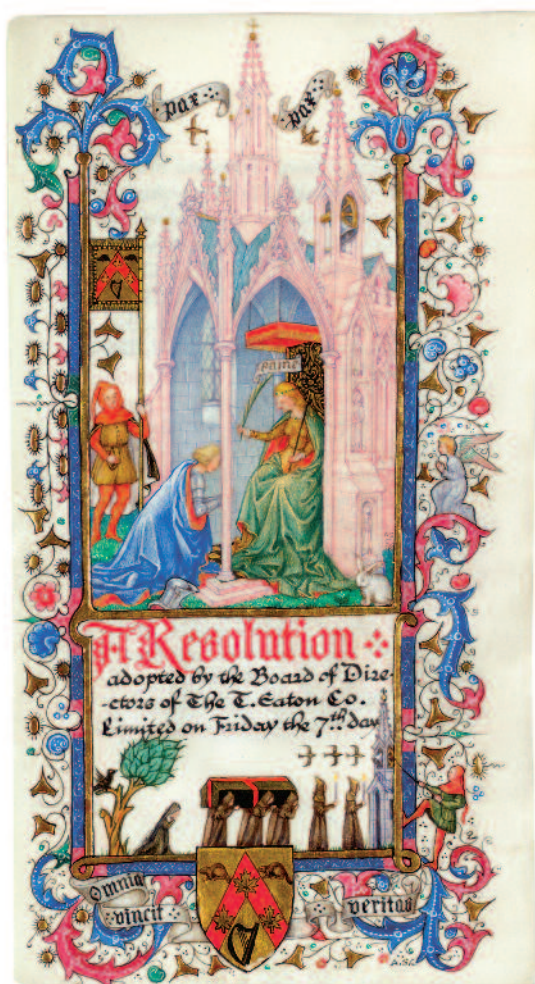 pax
pax
FAME
A Resolution
adopted by the Board of Dire-
-ctors of The T. Eaton Co.
Limited on Friday the 7th day
Omnia
vincit
veritas